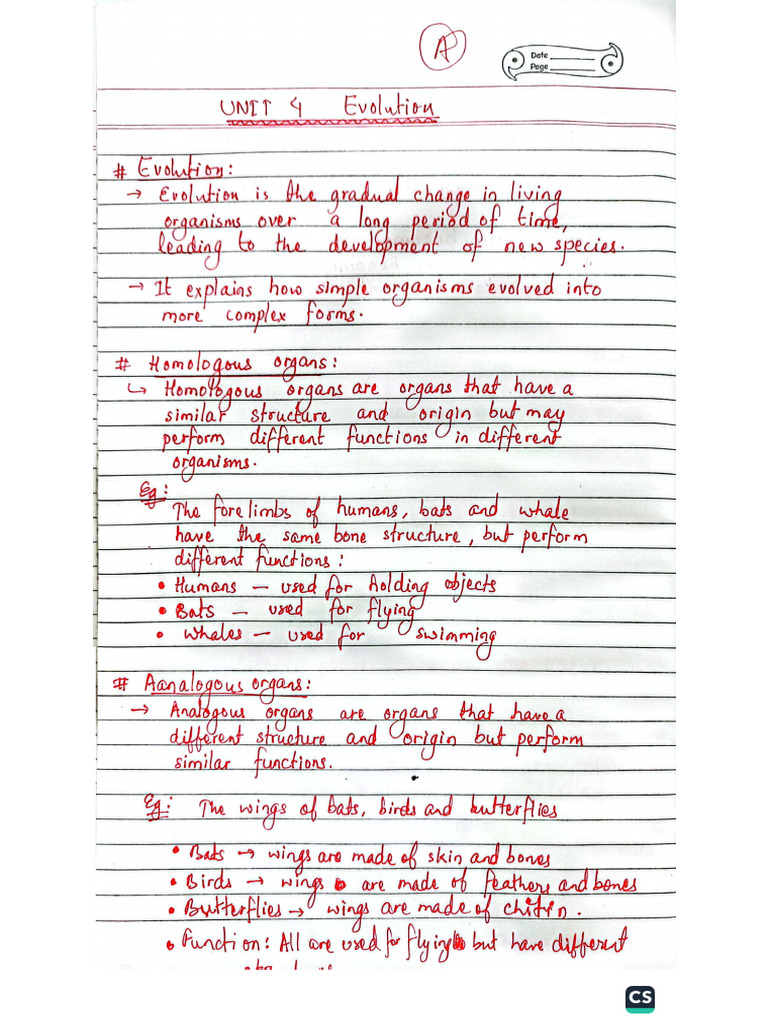 A
Date
Page
UNIT 4 Evolution
# Evolution:
→ Evolution is the gradual change in living
organisms over a long period of time,
leading to the development of new species.
→ It explains how simple organisms evolved into
more complex forms.
# Homologous organs:
↳ Homologous organs are organs that have a
similar structure and origin but may
perform different functions in different
organisms.
Eg:
The forelimbs of humans, bats and whale
have the same bone structure, but perform
different functions:
• Humans – used for holding objects
• Bats – used for flying
• Whales – used for swimming
# Aanalogous organs:
→ Analogous organs are organs that have a
different structure and origin but perform
similar functions.
Eg: The wings of bats, birds and butterflies
• Bats → wings are made of skin and bones
• Birds → wings are made of feathers and bones
• Butterflies → wings are made of chitin.
• Function: All are used for flying but have different
CS